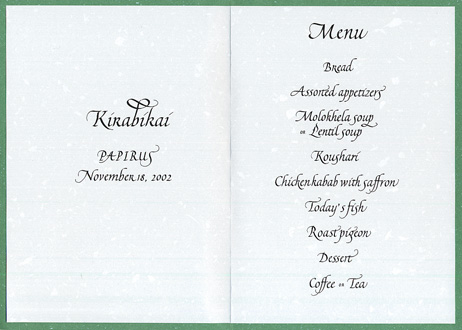 Kirabikai
PAPIRUS
November 18, 2002
Menu
Bread
Assorted appetizers
Molokhela soup
or Lentil soup
Koushari
Chicken kabab with saffron
Today's fish
Roast pigeon
Dessert
Coffee or Tea